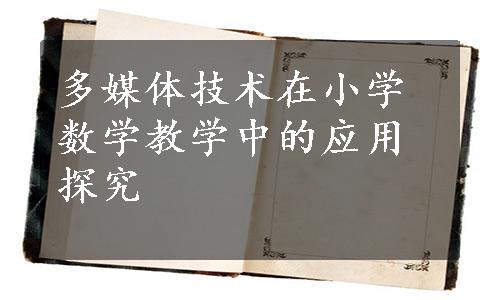 多媒体技术在小学
数学教学中的应用
探究